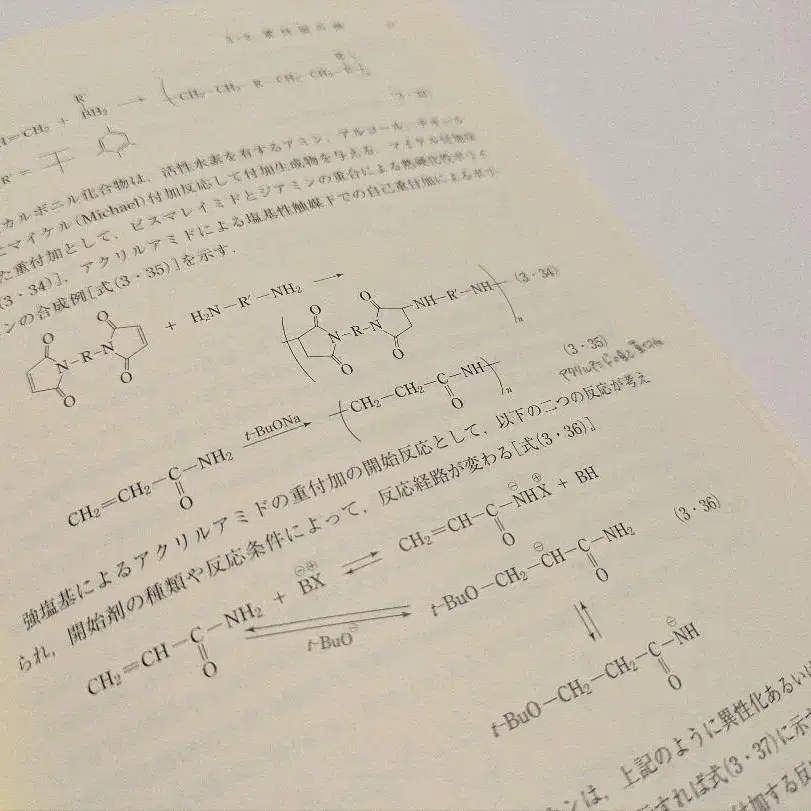 3・8 重付加
=CH2 + BH2 → (CH2-CH2-R-CH2-CH2-B)
R'
R'
(3・33)
R =
カルボニル化合物は，活性水素を有するアミン，アルコール，チオール
マイケル(Michael)付加反応して付加生成物を与える．マイケル付加
た重付加として，ビスマレイミドとジアミンの重合による熱硬化性ポリイ
(3・34)］，アクリルアミドによる塩基性触媒下での自己重付加によるポリ
ンの合成例［式(3・35)］を示す．
N-R-N + H2N-R'-NH2 → (N-R-N NH-R'-NH)n (3・34)
O O O O O O O O
CH2=CH2-C-NH2 t-BuONa → (CH2-CH2-C-NH)n (3・35)
O O
強塩基によるアクリルアミドの重付加の開始反応として，以下の二つの反応が考え
られ，開始剤の種類や反応条件によって，反応経路が変わる［式(3・36)］
CH2=CH-C-NH2 + B⊖X⊕ ⇌ CH2=CH-C-N⊖HX⊕ + BH
O O
t-BuO⊖ ⇌ t-BuO-CH2-C⊖H-C-NH2 (3・36)
O
⇌
t-BuO-CH2-CH2-C-N⊖H
O
ンは，上記のように異性化あるいは
すれば式(3・37)に示す
付加する反